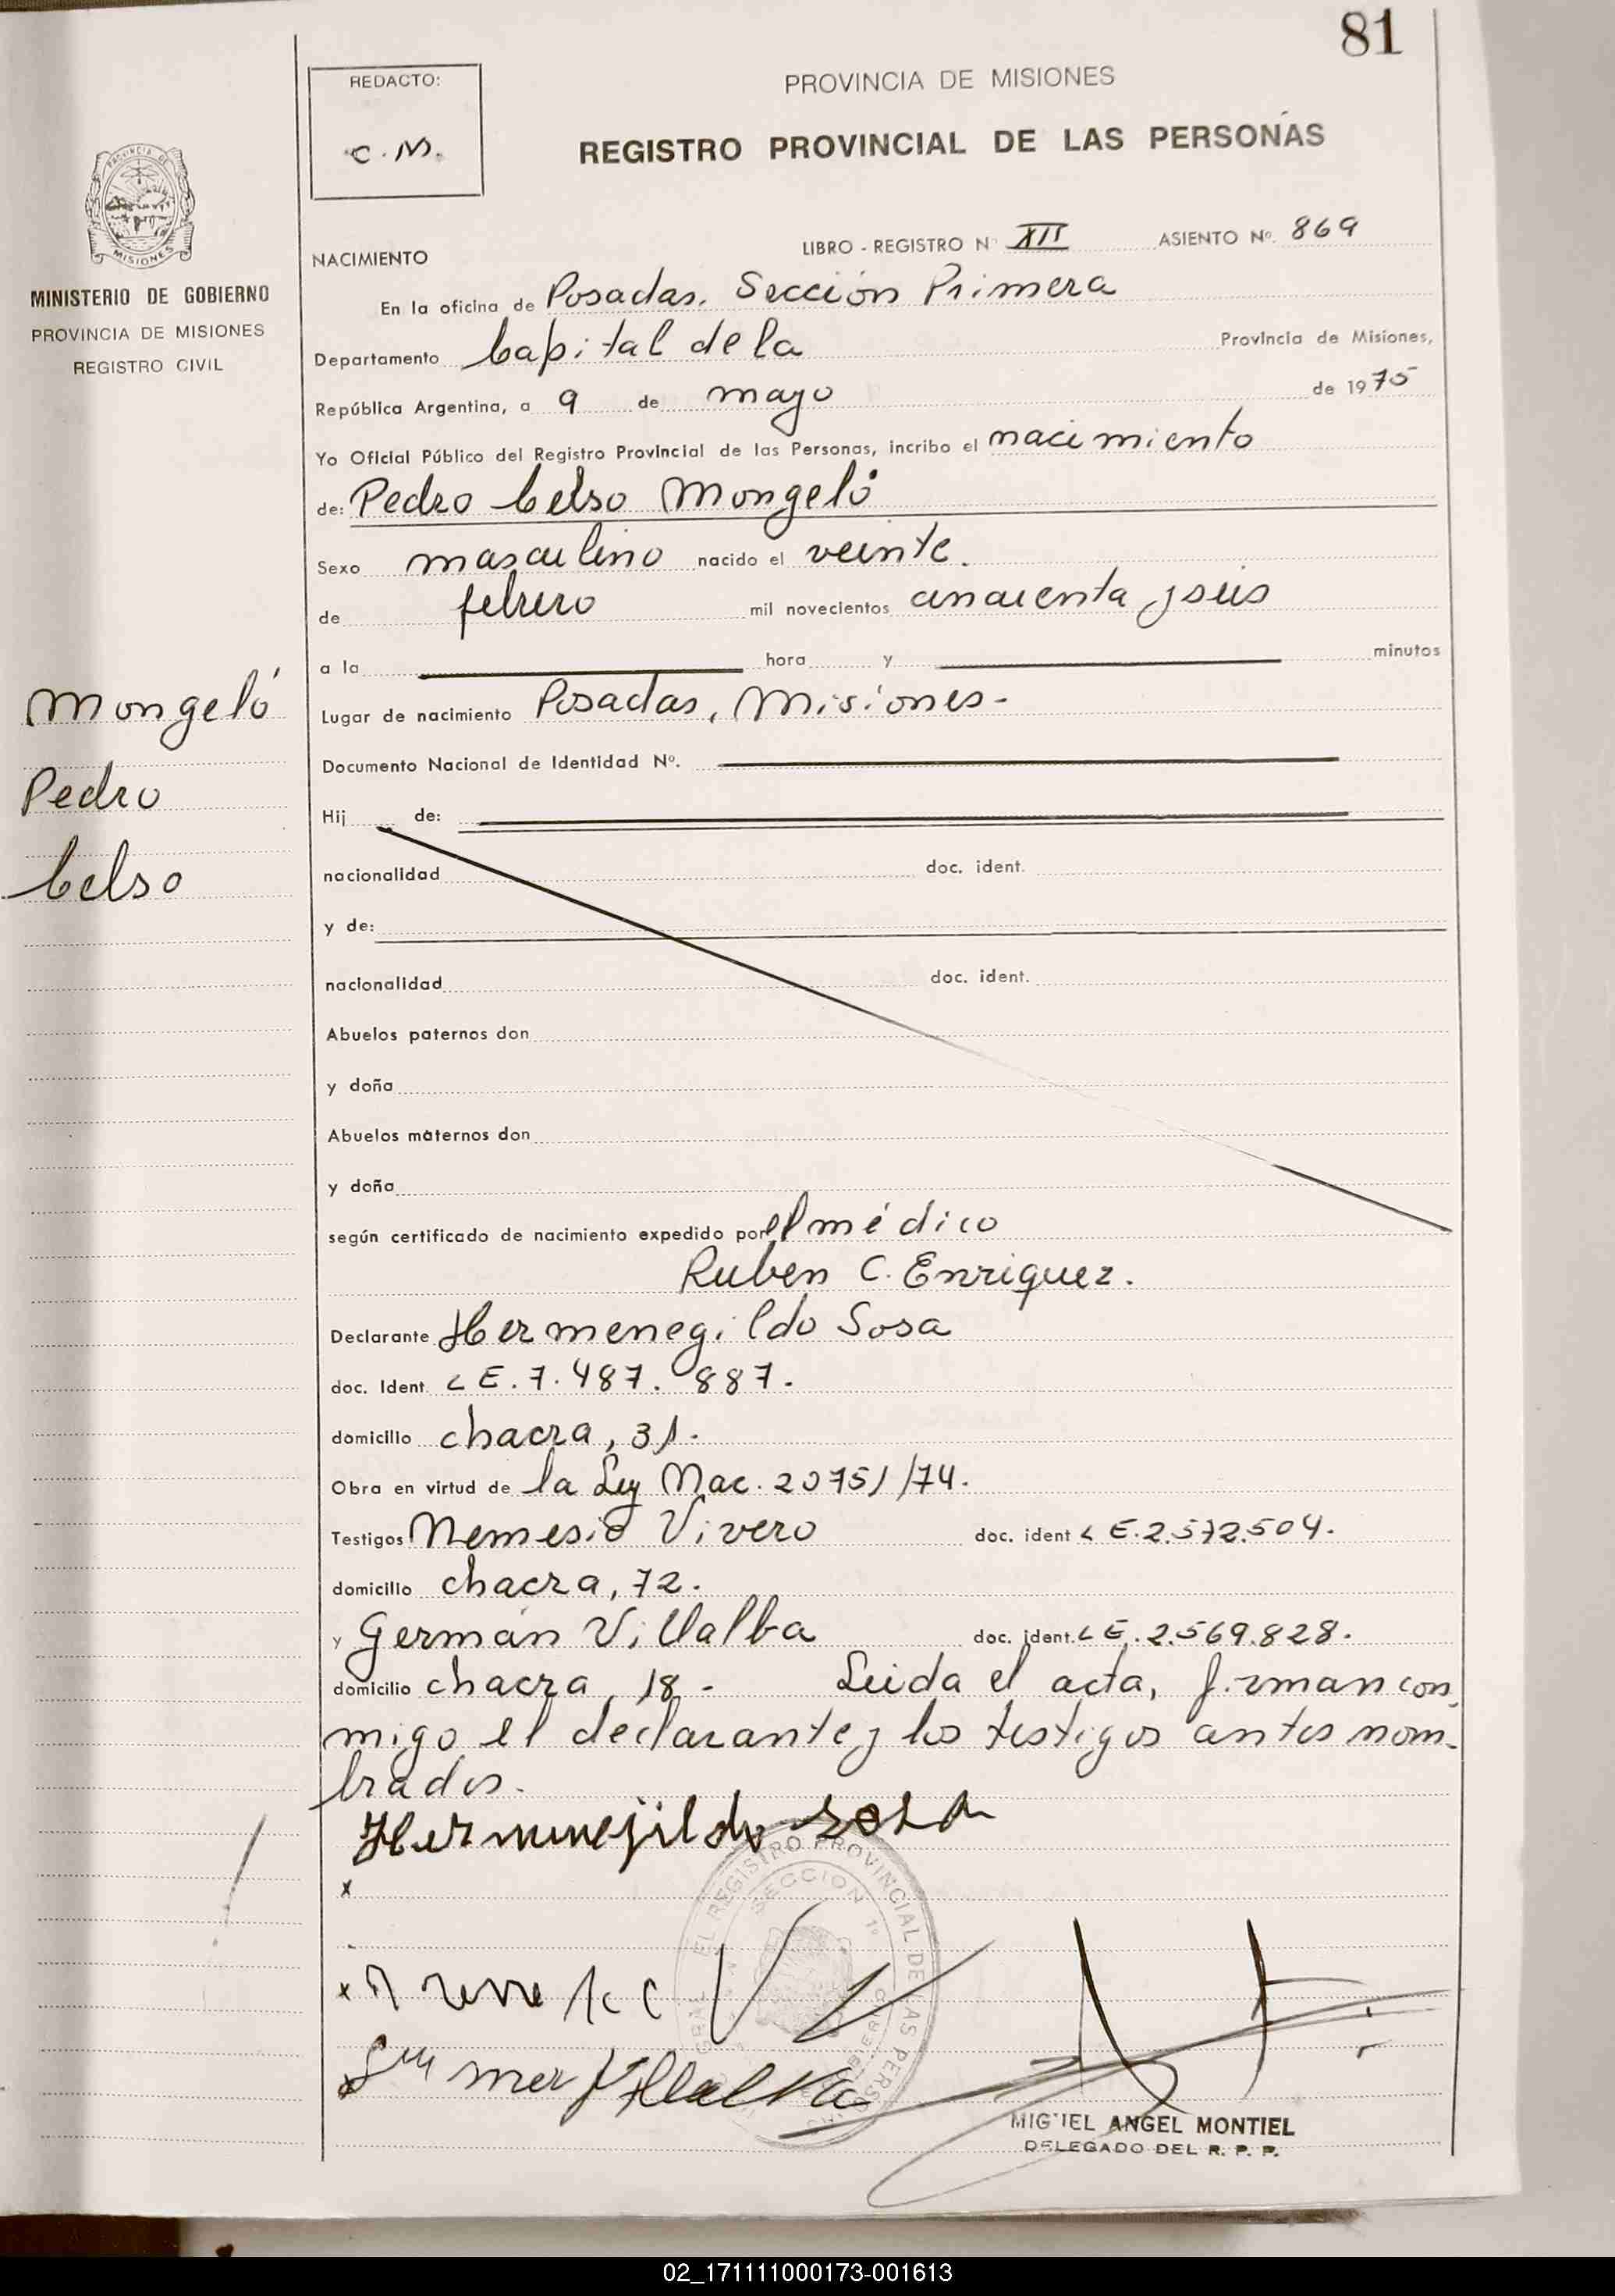 81
REDACTO:
C.M.
PROVINCIA DE MISIONES
REGISTRO PROVINCIAL DE LAS PERSONAS
PROVINCIA DE
MISIONES
MINISTERIO DE GOBIERNO
PROVINCIA DE MISIONES
REGISTRO CIVIL
NACIMIENTO LIBRO - REGISTRO Nº XII ASIENTO Nº. 869
En la oficina de Posadas. Sección Primera
Departamento Capital de la Provincia de Misiones,
República Argentina, a 9 de mayo de 1975
Yo Oficial Público del Registro Provincial de las Personas, incribo el nacimiento
de: Pedro Celso Mongeló
Sexo masculino nacido el veinte.
de febrero mil novecientos cincuenta y seis
a la hora y minutos
Mongeló
Pedro
Celso
Lugar de nacimiento Posadas, Misiones-
Documento Nacional de Identidad Nº.
Hij de:
nacionalidad doc. ident.
y de:
nacionalidad doc. ident.
Abuelos paternos don
y doña
Abuelos maternos don
y doña
según certificado de nacimiento expedido por el médico
Ruben C. Enriquez.
Declarante Hermenegildo Sosa
doc. Ident. LE.7.487.887.
domicilio chacra, 31.
Obra en virtud de la Ley Nac. 20751/74.
Testigos Nemesio Vivero doc. ident LE.2.572.504.
domicilio chacra, 72.
y Germán Villalba doc. ident. LE.2.569.828.
domicilio chacra, 18- Leida el acta, firman con
migo el declarante y los testigos antes nom-
brados.
Hermenejildo Sosa
x
x
x Villalva
EL REGISTRO PROVINCIAL DE LAS PERSONAS
SECCION 1º
MIGUEL ANGEL MONTIEL
DELEGADO DEL R. P. P.
02_171111000173-001613